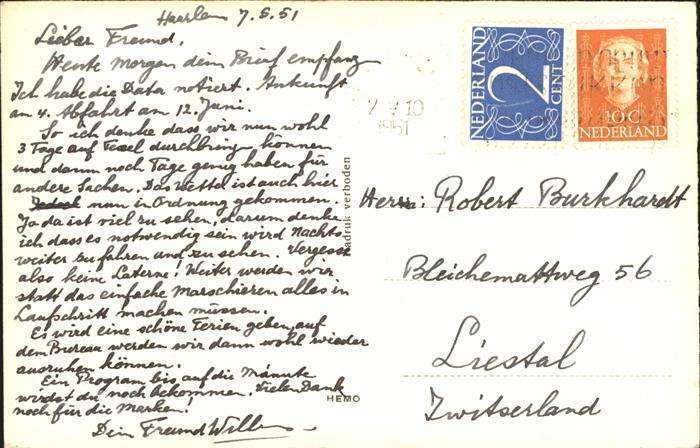 Haarlem 7.5.51
Lieber Freund,
Heute morgen dein Brief empfang
Ich habe die Data notiert. Ankunft
am 4. Abfahrt am 12. Juni.
So ich denke dass wir nun wohl
3 Tage auf Texel durchbringen können
und dann noch Tage genug haben für
andere Sachen. Das Wettel ist auch hier
nun in Ordnung gekommen.
Ja da ist viel zu sehen, darum denke
ich dass es notwendig sein wird Nachts
weiter zu fahren und zu sehen. Vergesst
also keine Laterne! Weiter werden wir
statt das einfache Marschieren alles in
Laufschritt machen müssen.
Es wird eine schöne Ferien geben, auf
dem Bureau werden wir dann wohl wieder
ausruhen können.
Ein Program bis auf die Minute
wirdst du noch bekommen. Vielen Dank
noch für die Marken!
Dein Freund Willem
Nadruk verboden
HEMO
NEDERLAND
2
CENT
10 C
NEDERLAND
7 V 10
1951
Herrn: Robert Burkhardt
Bleichemattweg 56
Liestal
Zwitserland